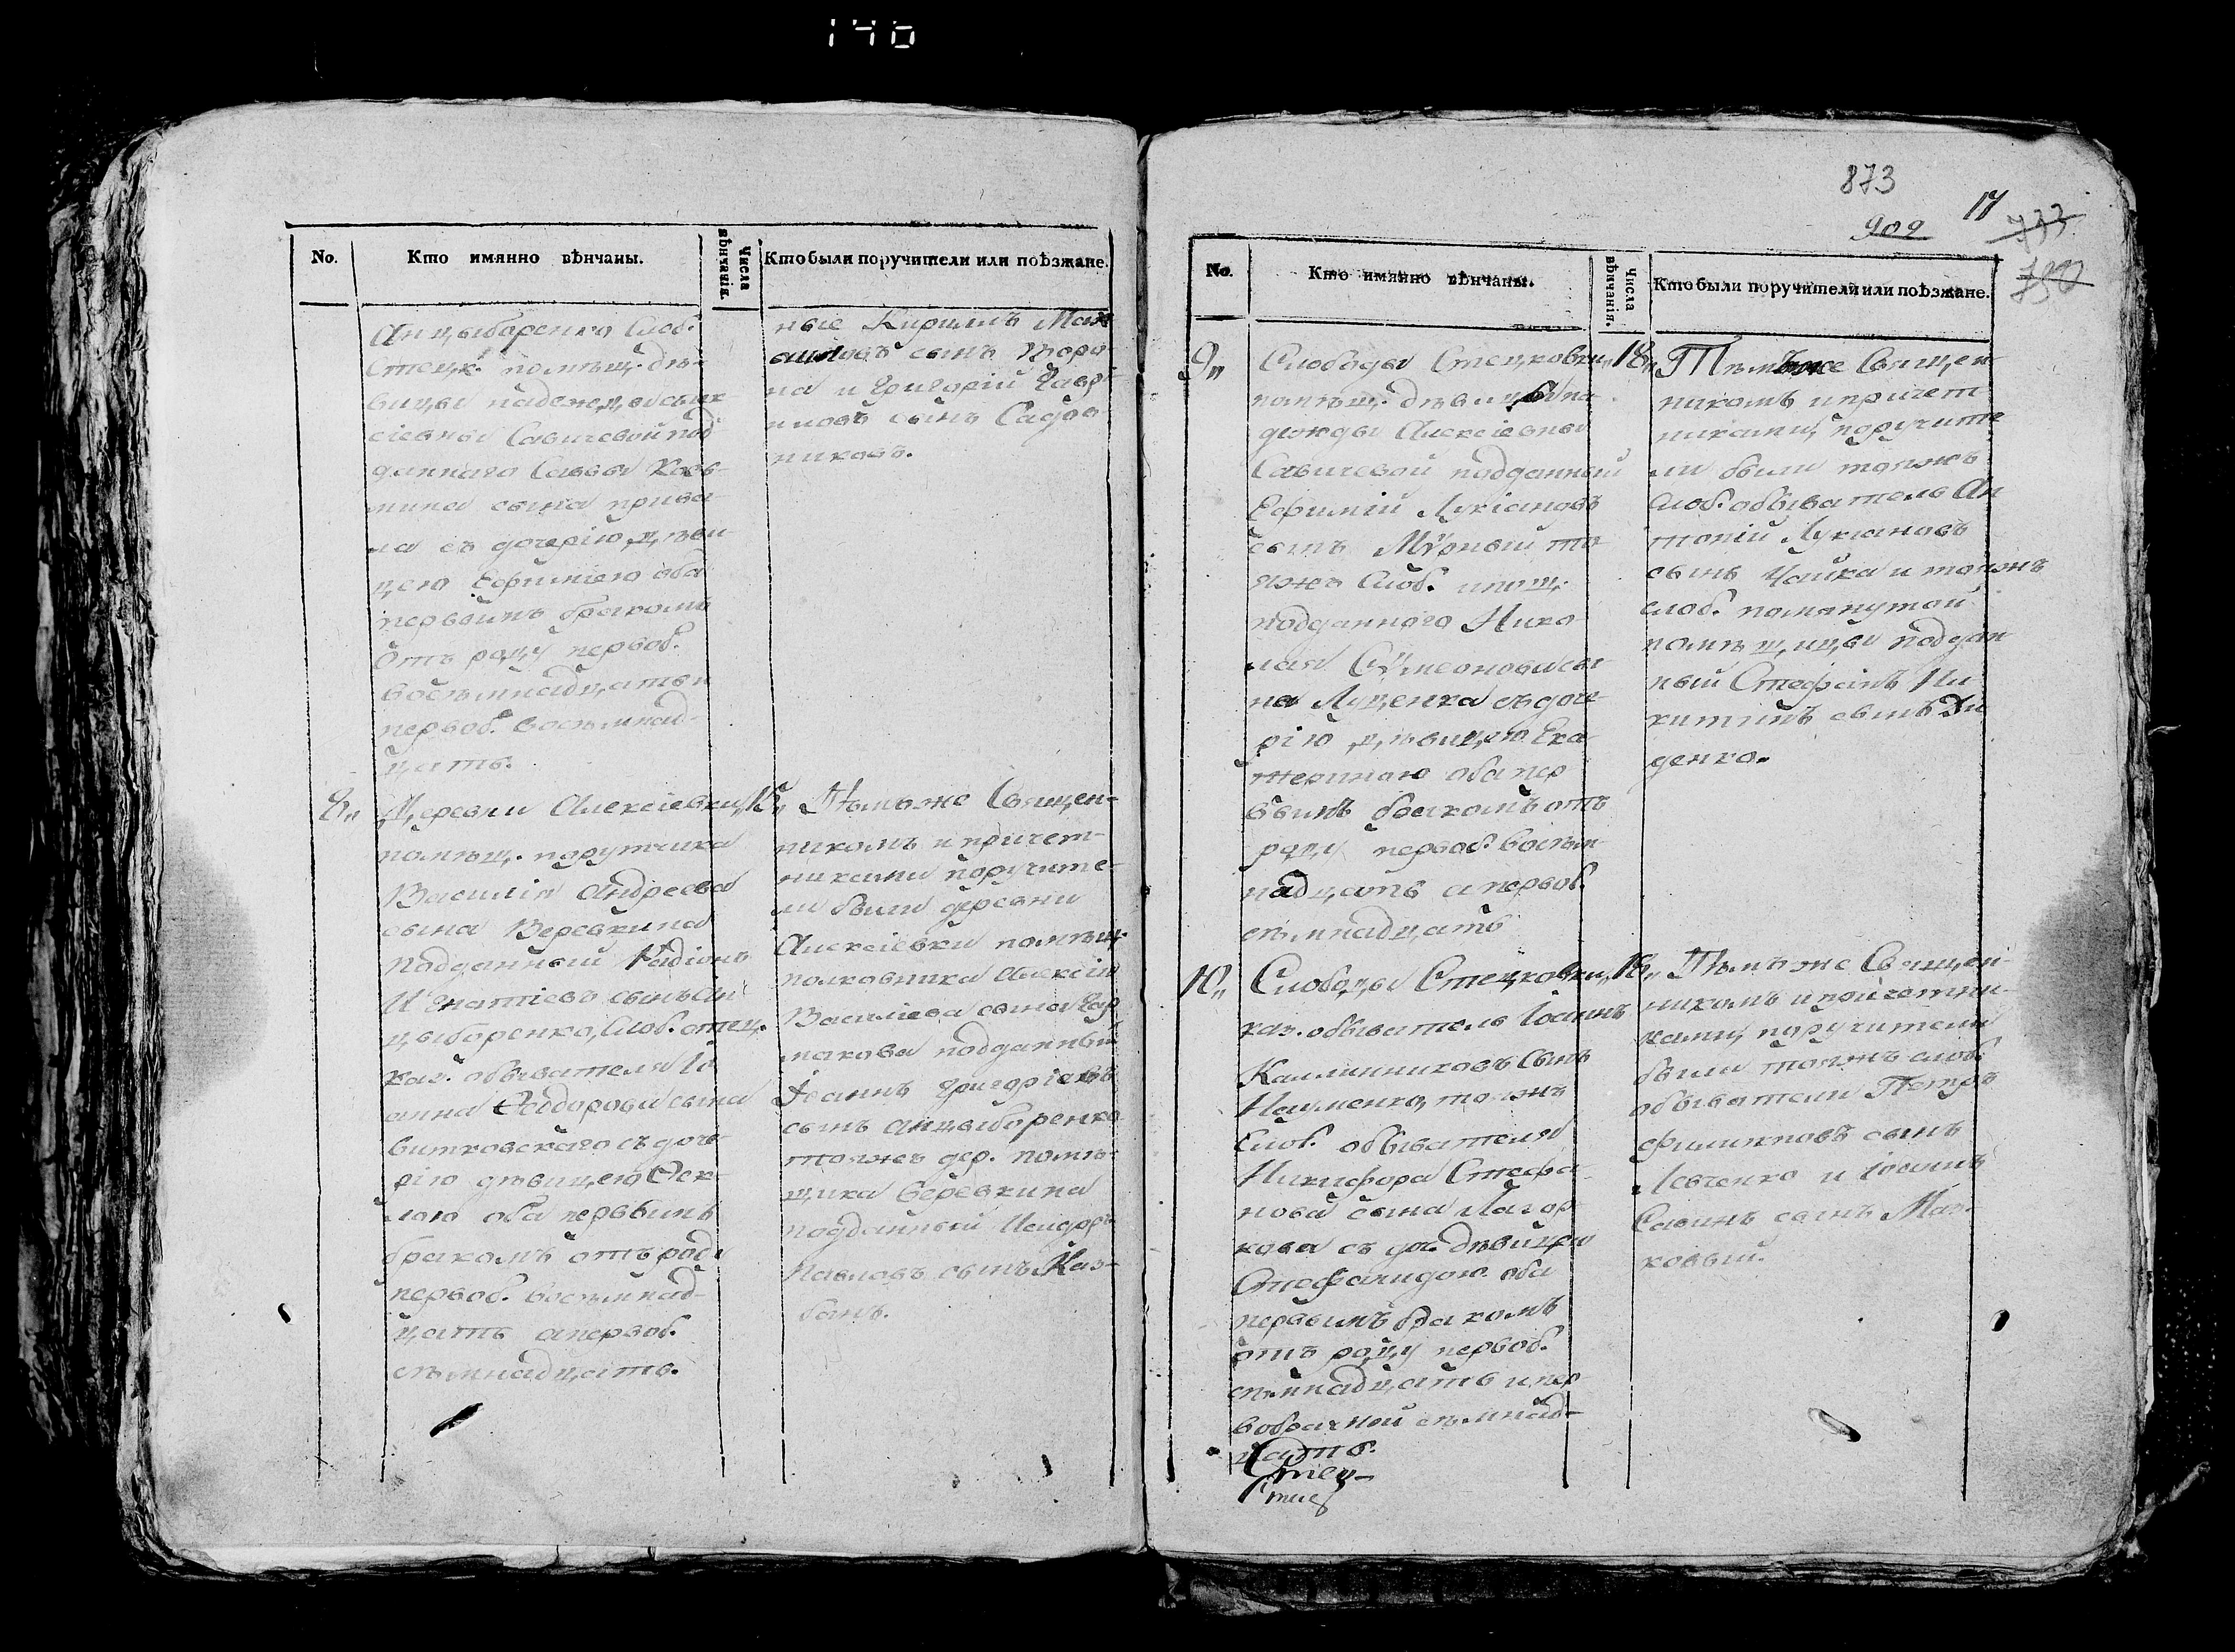 146
No.
Кто имянно вѣнчаны.
Числа вѣнчанія.
Кто были поручители или поѣзжане.
Анцыборенко Слоб.
Стецк. помѣщ. дѣ-
вицы надежды алек-
сіевны Савичевой под
даннаго Саввы Козь-
мина сына
съ дочерію дѣви-
цею Ефиміею оба
первымъ бракомъ
отъ роду первоб.
восѣмнадцать и
первоб. восѣмнад-
цать.
ные Кирилъ
сынъ
на и Григорій Гаврі-
иловъ сынъ Садов
никовъ.
8„ Деревни Алексіевки
помѣщ. порутчика
Василія Андреева
сына Веревкина
подданный Радіонъ
Игнатіевъ сынъ Ан
цыборенко, Слоб. стец.
каз. обывателя Іо
анна Ѳеодорова сына
витковскаго съ доче-
рію дѣвицею Ѳек-
лою оба первымъ
бракомъ отъ роду
первоб. восѣмнад-
цать а первоб.
сѣмнадцать.
15„
Тѣмъже Священ-
никомъ и причет-
никами поручите-
ли были деревни
Алексіевки помѣщ.
полковника Алексія
Василіева сына
подданный
Іоаннъ Григоріевъ
сынъ Анцыборенко
тояжъ дер. помѣ-
щика Веревкина
подданный
Павловъ сынъ Каз-
банъ.
873
909
17
733
No.
Кто имянно вѣнчаны.
Числа вѣнчанія.
Кто были поручители или поѣзжане.
9„ Слободы Стецковки
помѣщ. дѣвицы на
дежды Алексіевны
Савичевой подданный
Ефимій Лукіановъ
сынъ Мурный то
яжъ Слоб. помѣщ.
подданного Нико
лая Сѵмеонова сы
на Луценка съ доче
рію дѣвицею Ека
териною оба пер
вымъ бракомъ отъ
роду первоб. восѣм-
надцать а первоб.
сѣмнадцать
18„
Тѣмъже Священ
никомъ и причет
никами, поручите
ли были тояжъ
слоб. обыватель Ан
тоній Лукіановъ
сынъ Чайка и тояжъ
слоб. помянутой
помѣщицы поддан
ный Стефанъ Ни
китинъ сынъ Ди
денко.
10„ Слободы Стецковки
каз. обыватель Іоаннъ
Каллинниковъ сынъ
Науменко, тояжъ
Слоб. обывателя
Никифора Стефа-
нова сына Лагор
кова съ доч. дѣвицею
Стефанидою оба
первымъ бракомъ
отъ роду первоб.
сѣмнадцать и пер
вобрачной сѣмнад-
цать.
Стец-
18„
Тѣмъже Священ-
никомъ и причетни-
ками, поручители
были тояжъ слоб.
обыватели Петръ
филиповъ сынъ
Левченко и Іоаннъ
Савинъ сынъ Маз-
ковый.